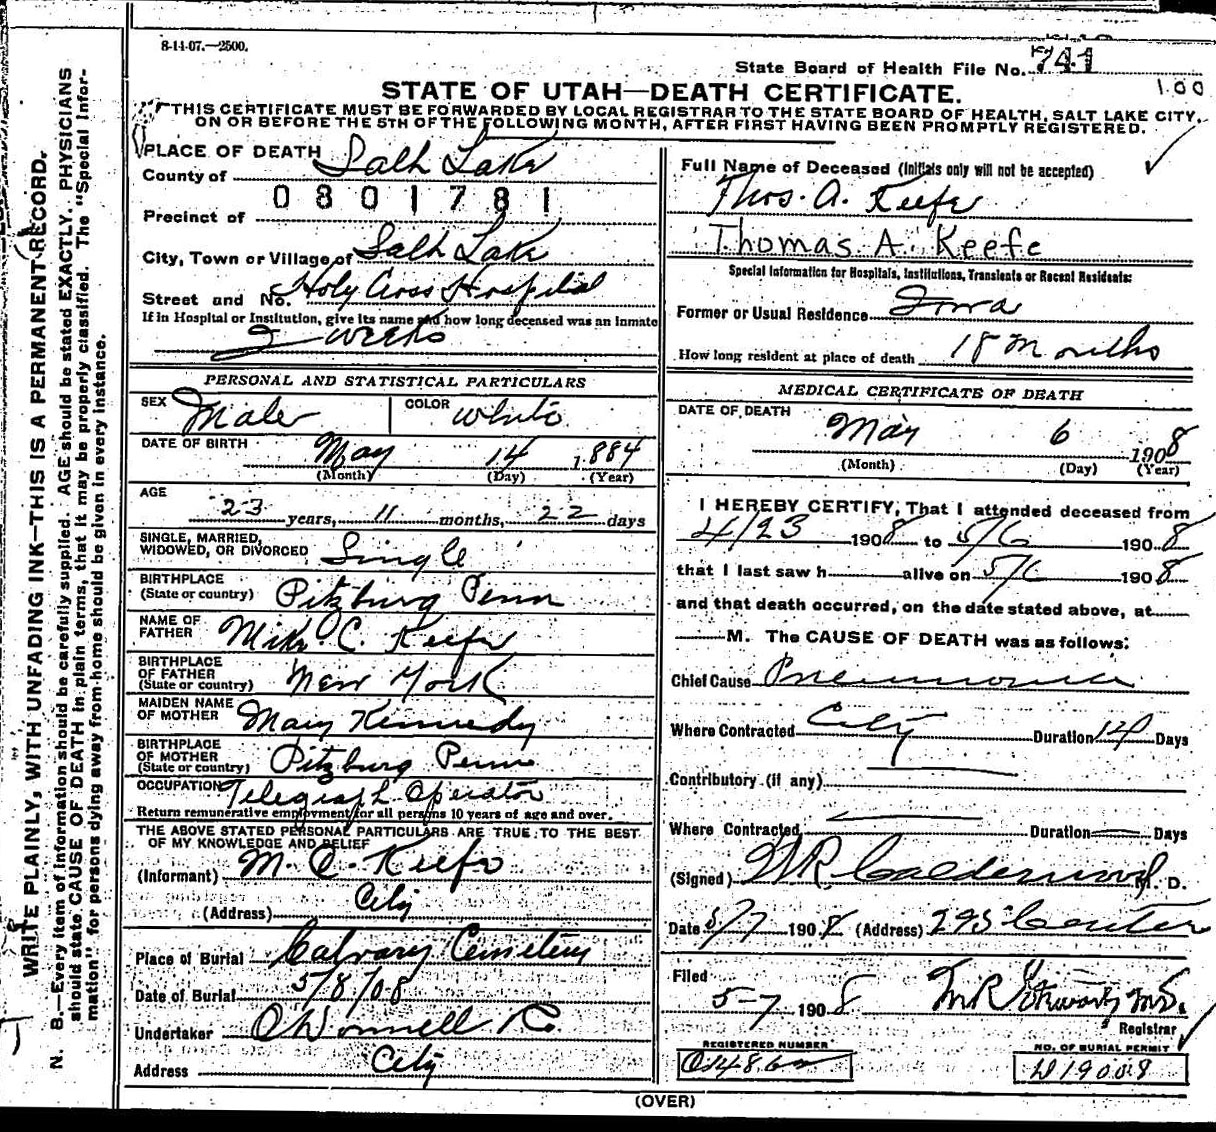 8-14-07.—2500.
State Board of Health File No. 741
1.00
STATE OF UTAH—DEATH CERTIFICATE.
THIS CERTIFICATE MUST BE FORWARDED BY LOCAL REGISTRAR TO THE STATE BOARD OF HEALTH, SALT LAKE CITY,
ON OR BEFORE THE 5TH OF THE FOLLOWING MONTH, AFTER FIRST HAVING BEEN PROMPTLY REGISTERED.
WRITE PLAINLY, WITH UNFADING INK—THIS IS A PERMANENT RECORD.
N. B.—Every item of information should be carefully supplied. AGE should be stated EXACTLY. PHYSICIANS
should state CAUSE OF DEATH in plain terms, that it may be properly classified. The "Special Infor-
mation" for persons dying away from home should be given in every instance.
PLACE OF DEATH
County of Salt Lake
0801781
Precinct of
City, Town or Village of Salt Lake
Street and No. Holy Cross Hospital
If in Hospital or Institution, give its name and how long deceased was an inmate
2 weeks
PERSONAL AND STATISTICAL PARTICULARS
SEX Male COLOR White
DATE OF BIRTH May 14 1884
(Month) (Day) (Year)
AGE
23 years, 11 months, 22 days
SINGLE, MARRIED,
WIDOWED, OR DIVORCED Single
BIRTHPLACE
(State or country) Pitzburg Penn
NAME OF
FATHER Mike C. Keefe
BIRTHPLACE
OF FATHER
(State or country) New York
MAIDEN NAME
OF MOTHER Mary Kennedy
BIRTHPLACE
OF MOTHER
(State or country) Pitzburg Penn
OCCUPATION Telegraph Operator
Return remunerative employment for all persons 10 years of age and over.
THE ABOVE STATED PERSONAL PARTICULARS ARE TRUE TO THE BEST
OF MY KNOWLEDGE AND BELIEF
(Informant) M. C. Keefe
(Address) City
Place of Burial Calvary Cemetery
Date of Burial 5/8/08
Undertaker O'Donnell & Co.
Address City
Full Name of Deceased (Initials only will not be accepted)
Thos. A. Keefe
Thomas A. Keefe
Special Information for Hospitals, Institutions, Transients or Recent Residents:
Former or Usual Residence Iowa
How long resident at place of death 18 months
MEDICAL CERTIFICATE OF DEATH
DATE OF DEATH
May 6 1908
(Month) (Day) (Year)
I HEREBY CERTIFY, That I attended deceased from
4/23 1908 to 5/6 1908
that I last saw h alive on 5/6 1908
and that death occurred, on the date stated above, at
M. The CAUSE OF DEATH was as follows:
Chief Cause Pneumonia
Where Contracted City Duration 14 Days
Contributory (if any)
Where Contracted Duration Days
(Signed) W R Calderwood M. D.
Date 5/7 1908 (Address) 29 S Center
Filed
5-7 1908 M.D.
Registrar
REGISTERED NUMBER
NO. OF BURIAL PERMIT
D19008
(OVER)